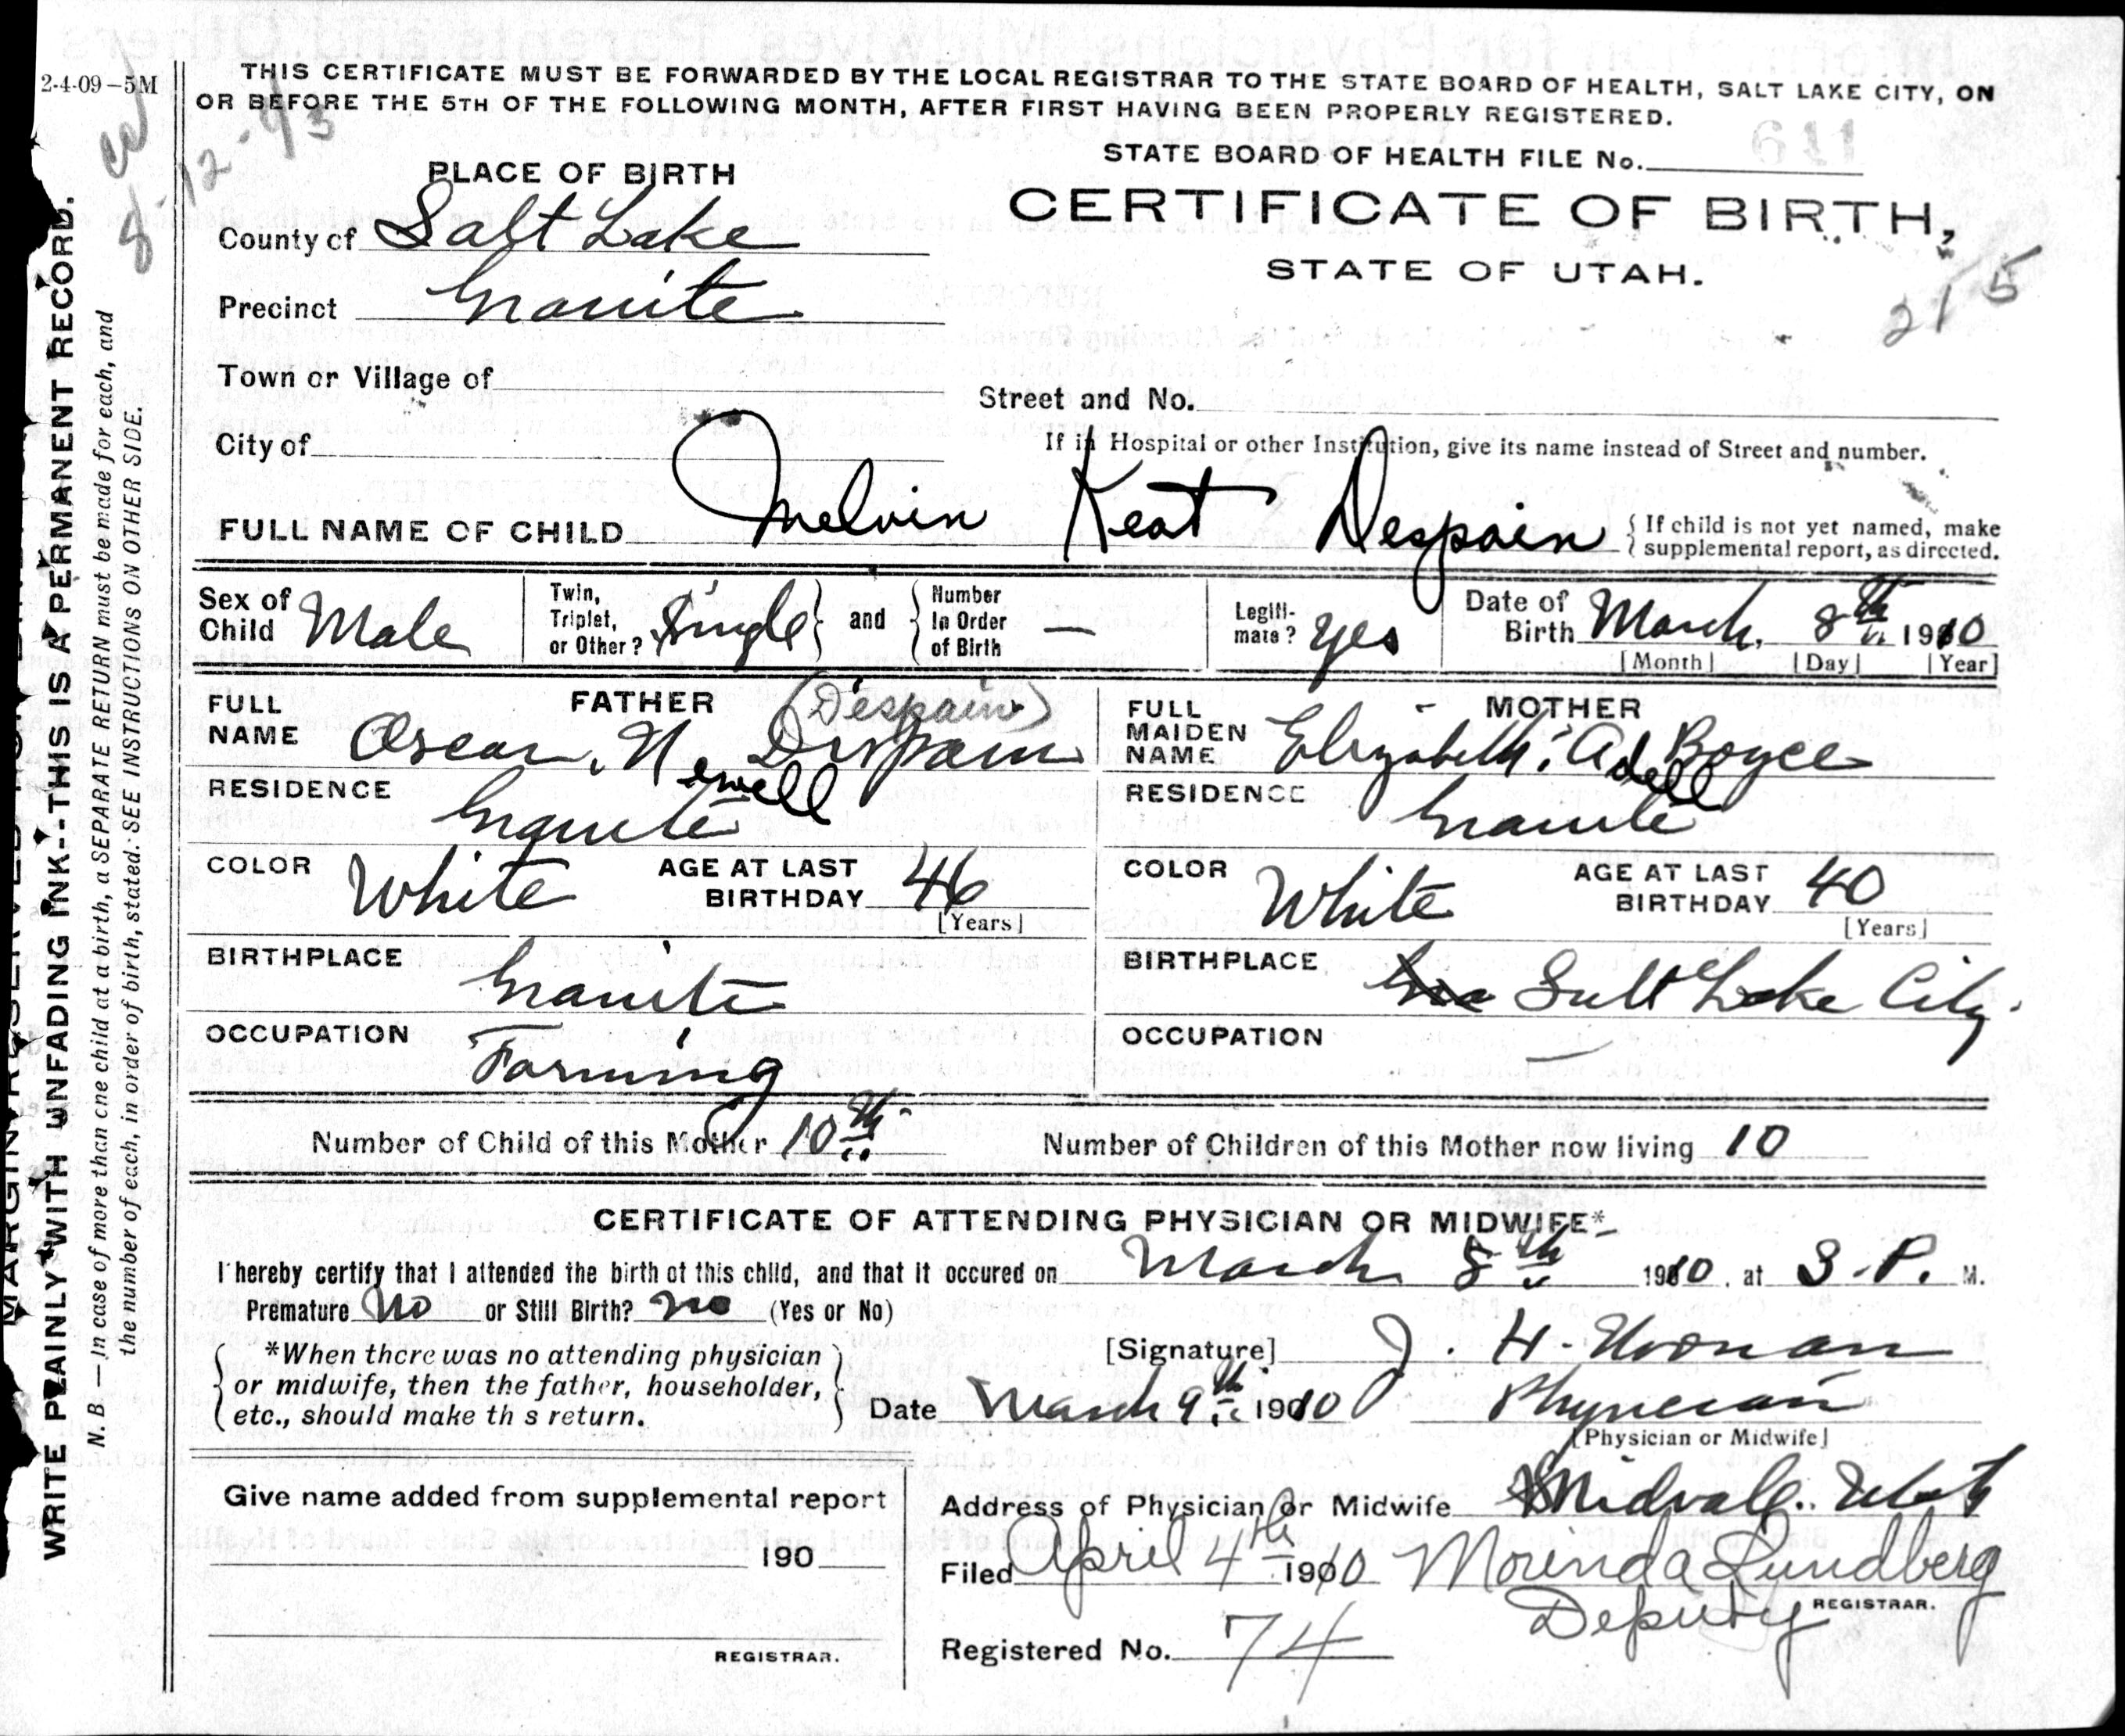 2-4-09-5M
THIS CERTIFICATE MUST BE FORWARDED BY THE LOCAL REGISTRAR TO THE STATE BOARD OF HEALTH, SALT LAKE CITY, ON
OR BEFORE THE 5TH OF THE FOLLOWING MONTH, AFTER FIRST HAVING BEEN PROPERLY REGISTERED.
8-12-43
STATE BOARD OF HEALTH FILE No.
611
PLACE OF BIRTH
CERTIFICATE OF BIRTH,
County of Salt Lake
STATE OF UTAH.
215
Precinct Granite
Town or Village of
Street and No.
City of
If in Hospital or other Institution, give its name instead of Street and number.
FULL NAME OF CHILD Melvin Keat Despain
{ If child is not yet named, make
supplemental report, as directed.
Sex of Child Male
Twin, Triplet, or Other? Single } and { Number In Order of Birth —
Legitimate? yes
Date of Birth March, 8th 1910
[Month] [Day] [Year]
FATHER
FULL NAME Oscar. Newell Despain (Despain)
MOTHER
FULL MAIDEN NAME Elizabeth Adell Boyce
RESIDENCE Granite
RESIDENCE Granite
COLOR White AGE AT LAST BIRTHDAY 46 [Years]
COLOR White AGE AT LAST BIRTHDAY 40 [Years]
BIRTHPLACE Granite
BIRTHPLACE Gra Salt Lake City.
OCCUPATION Farming
OCCUPATION —
Number of Child of this Mother 10th
Number of Children of this Mother now living 10
CERTIFICATE OF ATTENDING PHYSICIAN OR MIDWIFE*
I hereby certify that I attended the birth of this child, and that it occured on March 8th 1910, at 3. P. M.
Premature No or Still Birth? no (Yes or No)
*When there was no attending physician
or midwife, then the father, householder,
etc., should make th s return.
[Signature] J. H. Noonan
Date March 9th 1910 Physician
[Physician or Midwife]
Address of Physician or Midwife Midvale. Utah
Give name added from supplemental report
190
REGISTRAR.
Filed April 4th 1910 Morinda Lundberg
Deputy REGISTRAR.
Registered No. 74
WRITE PLAINLY WITH UNFADING INK--THIS IS A PERMANENT RECORD.
N. B.—In case of more than one child at a birth, a SEPARATE RETURN must be made for each, and
the number of each, in order of birth, stated. SEE INSTRUCTIONS ON OTHER SIDE.